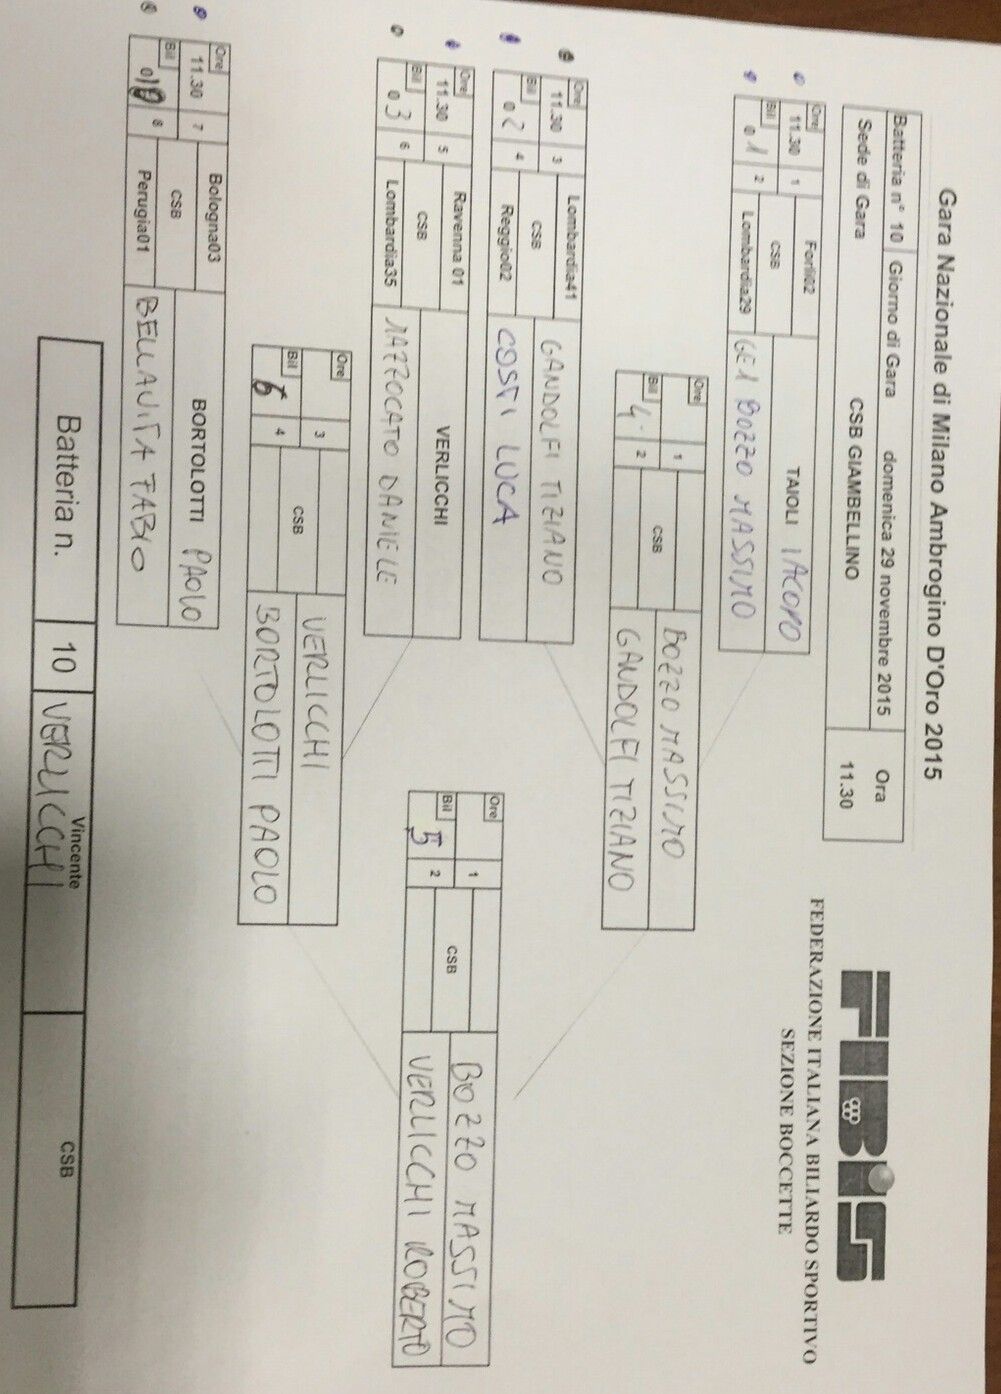 Gara Nazionale di Milano Ambrogino D'Oro 2015
Batteria n° 10 Giorno di Gara domenica 29 novembre 2015 Ora
Sede di Gara CSB GIAMBELLINO 11.30
FIBiS
FEDERAZIONE ITALIANA BILIARDO SPORTIVO
SEZIONE BOCCETTE
Ore 11.30 1 Forlì02 TAIOLI IACOPO
CSB
Bil 01 2 Lombardia29 BOZZO MASSIMO
Ore 1 BOZZO MASSIMO
CSB
Bil 4 2 GANDOLFI TIZIANO
Ore 11.30 3 Lombardia41 GANDOLFI TIZIANO
CSB
Bil 02 4 Reggio02 COSTI LUCA
Ore 1 BOZZO MASSIMO
CSB
Bil 5 2 VERLICCHI ROBERTO
Ore 11.30 5 Ravenna 01 VERLICCHI
CSB
Bil 03 6 Lombardia35 MAZZOCATO DANIELE
Ore 3 VERLICCHI
CSB
Bil 6 4 BORTOLOTTI PAOLO
Ore 11.30 7 Bologna03 BORTOLOTTI PAOLO
CSB
Bil 8 Perugia01 BELLAVITA FABIO
Vincente
Batteria n. 10 VERLICCHI CSB